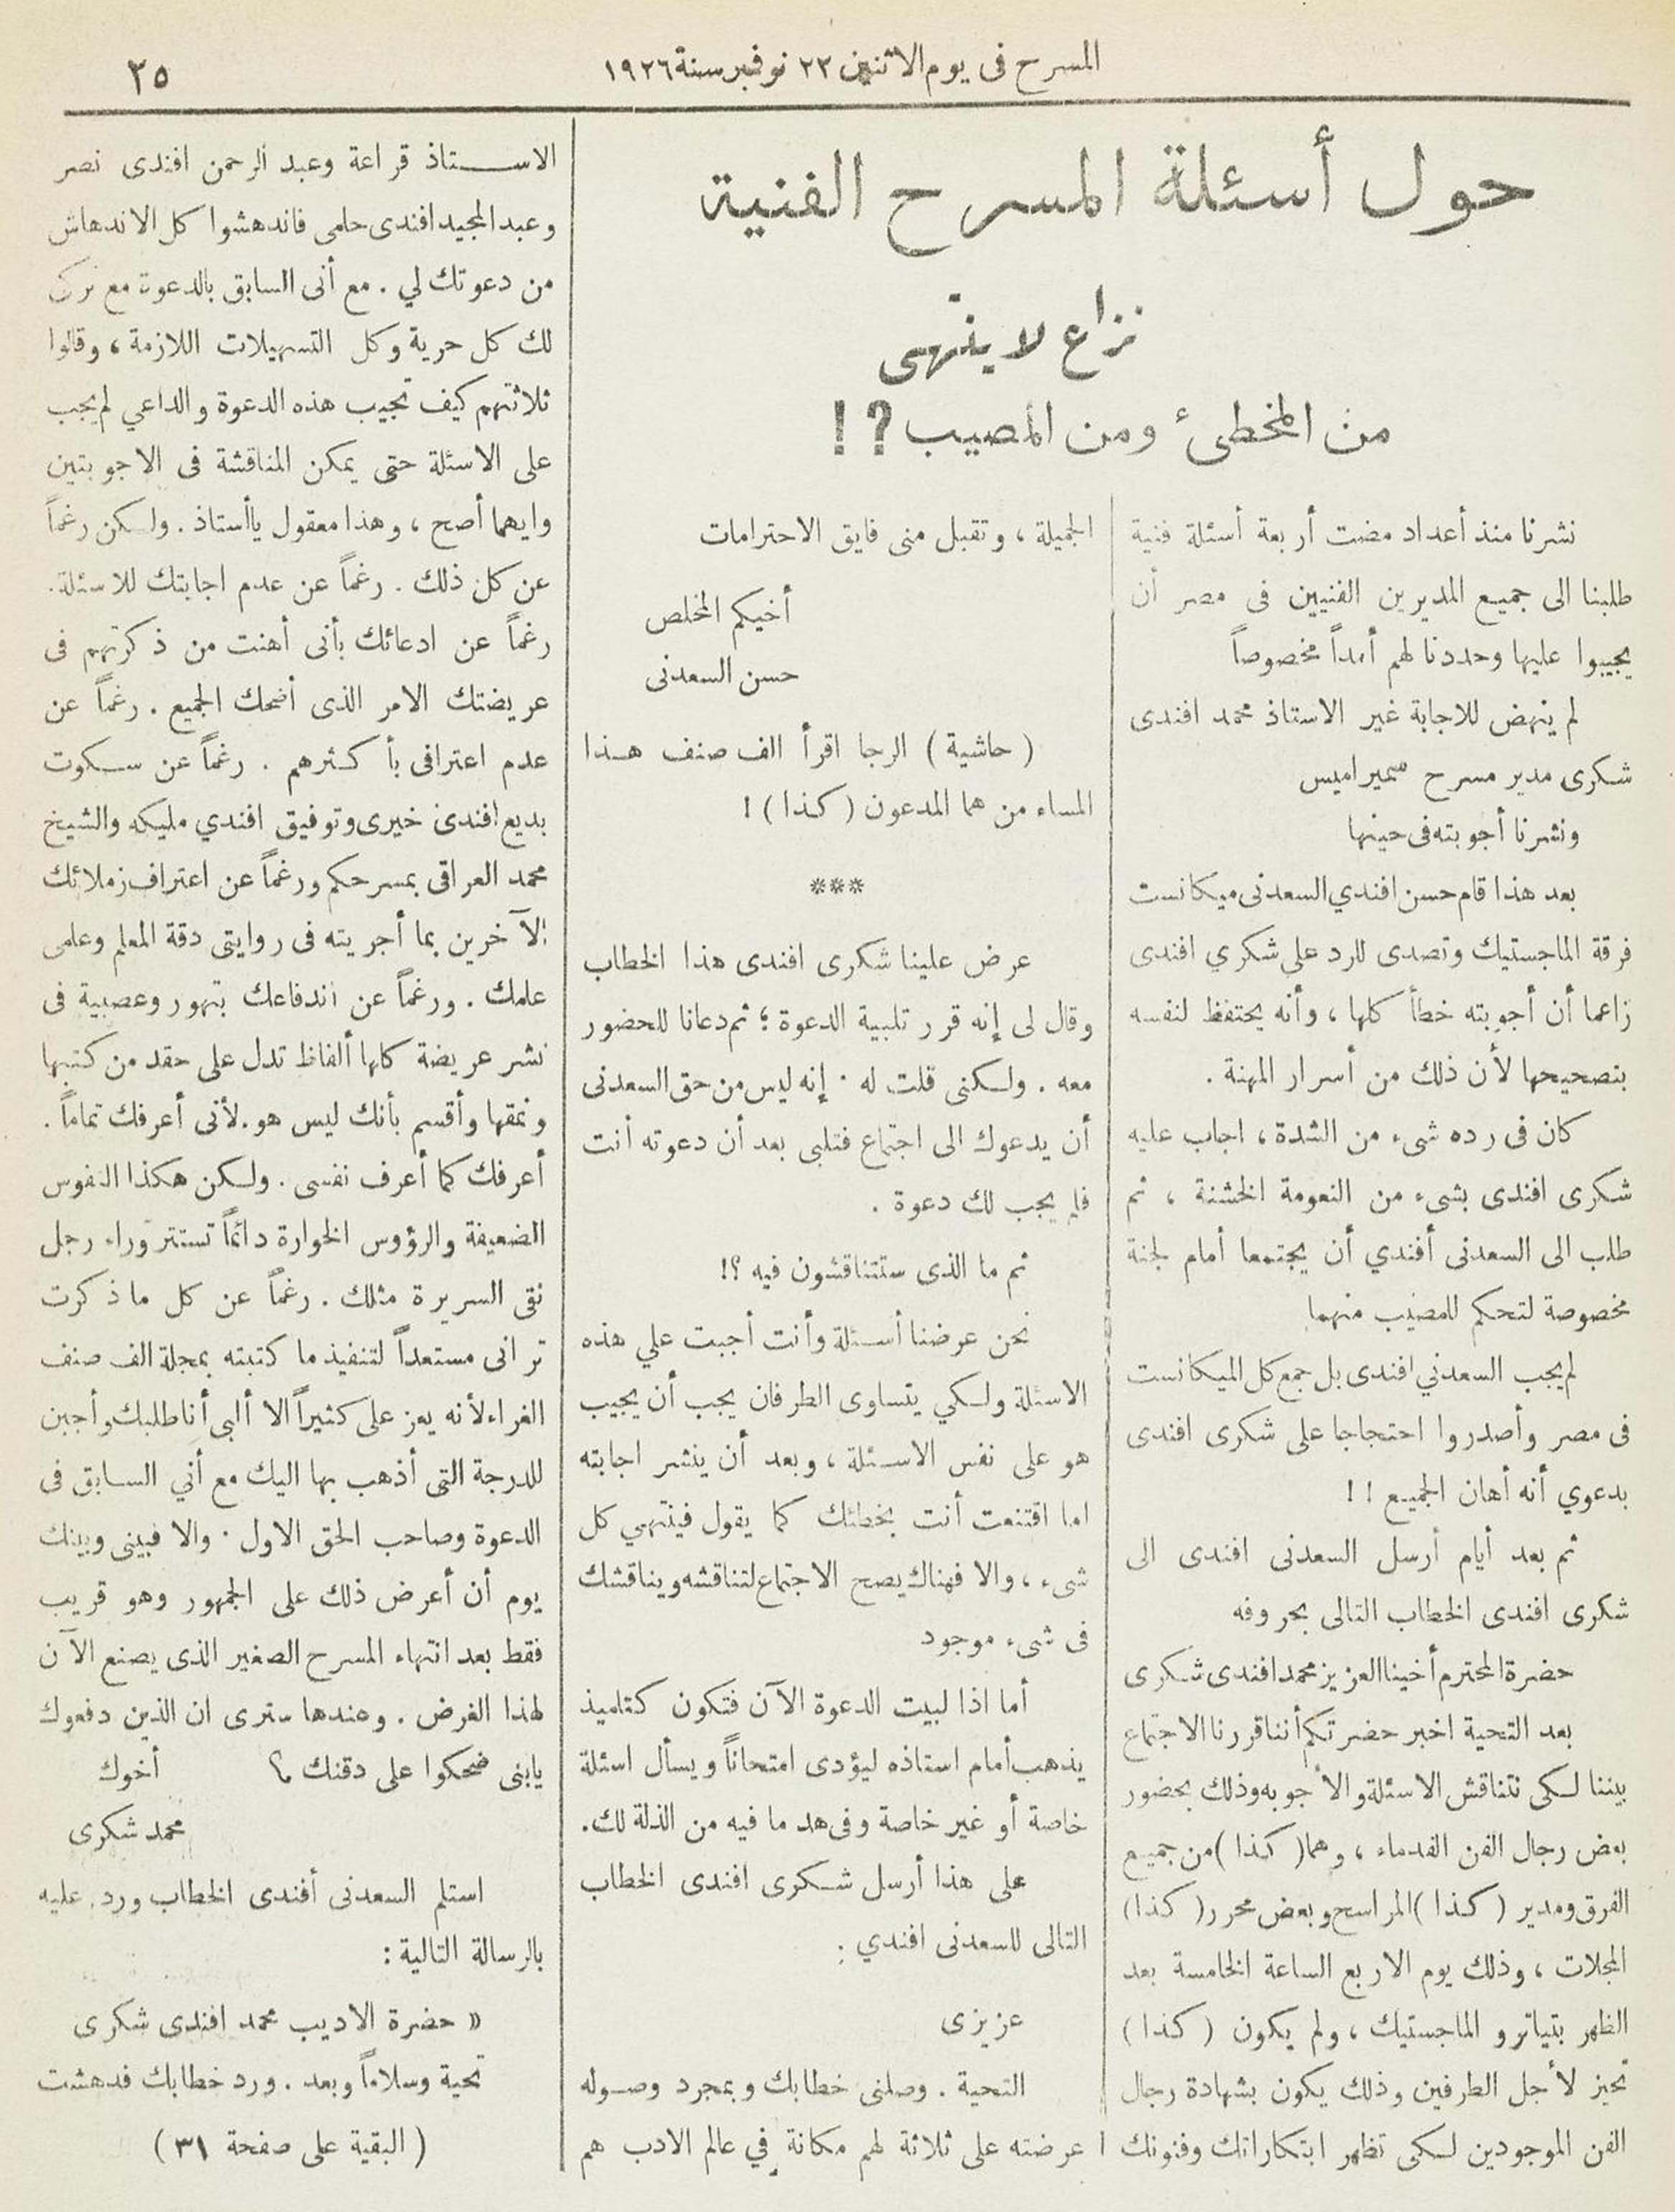 المسرح فى يوم الاثنين ٢٢ نوفمبر سنة ١٩٢٦
٢٥
حول أسئلة المسرح الفنية
نزاع لا ينتهى
من المخطىء ومن المصيب ؟ !
نشرنا منذ أعداد مضت أربعة أسئلة فنية
طلبنا الى جميع المديرين الفنيين فى مصر أن
يجيبوا عليها وحددنا لهم أمداً مخصوصاً
لم ينهض للاجابة غير الاستاذ محمد افندى
شكرى مدير مسرح سميراميس
ونشرنا أجوبته فى حينها
بعد هذا قام حسن افندي السعدنى ميكانست
فرقة الماجستيك وتصدى للرد على شكري افندى
زاعما أن أجوبته خطأ كلها ، وأنه يحتفظ لنفسه
بتصحيحها لأن ذلك من أسرار المهنة .
كان فى رده شىء من الشدة ، اجاب عليه
شكرى افندى بشىء من النعومة الخشنة ، ثم
طلب الى السعدنى أفندي أن يجتمعا أمام لجنة
مخصوصة لتحكم للمصيب منهما
لم يجب السعدني افندى بل جمع كل الميكانست
فى مصر وأصدروا احتجاجا على شكرى افندى
بدعوي أنه أهان الجميع ! !
ثم بعد أيام أرسل السعدنى افندى الى
شكرى افندى الخطاب التالى بحروفه
حضرة المحترم أخينا العزيز محمد افندى شكرى
بعد التحية اخبر حضرتكم أننا قررنا الاجتماع
بيننا لكى نتناقش الاسئلة والأجوبه وذلك بحضور
بعض رجال الفن القدماء ، وهما ( كذا ) من جميع
الفرق ومدير ( كذا ) المراسح وبعض محرر ( كذا )
المجلات ، وذلك يوم الاربع الساعة الخامسة بعد
الظهر بتياترو الماجستيك ، ولم يكون ( كذا )
تحيز لأجل الطرفين وذلك يكون بشهادة رجال
الفن الموجودين لكى تظهر ابتكاراتك وفنونك
الجميلة ، وتقبل منى فايق الاحترامات
أخيكم المخلص
حسن السعدنى
( حاشية ) الرجا اقرأ الف صنف هذا
المساء من هما المدعون ( كذا ) !
***
عرض علينا شكرى افندى هذا الخطاب
وقال لى إنه قرر تلبية الدعوة ؛ ثم دعانا للحضور
معه . ولكنى قلت له . إنه ليس من حق السعدنى
أن يدعوك الى اجتماع فتلبى بعد أن دعوته أنت
فلم يجب لك دعوة .
ثم ما الذى ستتناقشون فيه ؟!
نحن عرضنا أسئلة وأنت أجبت علي هذه
الاسئلة ولكي يتساوى الطرفان يجب أن يجيب
هو على نفس الاسئلة ، وبعد أن ينشر اجابته
اما اقتنعت أنت بخطئك كما يقول فينتهي كل
شىء ، والا فهناك يصح الاجتماع لتناقشه ويناقشك
فى شىء موجود
أما اذا لبيت الدعوة الآن فتكون كتلميذ
يذهب أمام استاذه ليؤدى امتحاناً ويسأل اسئلة
خاصة أو غير خاصة وفى هد ما فيه من الذلة لك.
على هذا أرسل شكرى افندى الخطاب
التالى للسعدنى افندي :
عزيزى
التحية . وصلنى خطابك وبمجرد وصوله
عرضته على ثلاثة لهم مكانة في عالم الادب هم
الاستاذ قراعة وعبد الرحمن افندى نصر
وعبد المجيد افندى حلمى فاندهشوا كل الاندهاش
من دعوتك لي . مع أنى السابق بالدعوة مع ترك
لك كل حرية وكل التسهيلات اللازمة ، وقالوا
ثلاثتهم كيف تجيب هذه الدعوة والداعي لم يجب
على الاسئلة حتى يمكن المناقشة فى الاجوبتين
وايهما أصح ، وهذا معقول يا أستاذ . ولكن رغماً
عن كل ذلك . رغماً عن عدم اجابتك للاسئلة .
رغماً عن ادعائك بأنى أهنت من ذكرتهم فى
عريضتك الامر الذى أضحك الجميع . رغماً عن
عدم اعترافى بأكثرهم . رغماً عن سكوت
بديع افندى خيرى وتوفيق افندي مليكه والشيخ
محمد العراقى بمسرحكم ورغماً عن اعتراف زملائك
الآخرين بما أجريته فى روايتى دقة المعلم وعلمى
علمك . ورغماً عن اندفاعك بتهور وعصبية فى
نشر عريضة كلها ألفاظ تدل على حقد من كتبها
ونمقها وأقسم بأنك ليس هو. لأنى أعرفك تماماً .
أعرفك كما أعرف نفسى . ولكن هكذا النفوس
الضعيفة والرؤوس الخوارة دائماً تستتر وراء رجل
نقى السريرة مثلك . رغماً عن كل ما ذكرت
ترانى مستعداً لتنفيذ ما كتبته بمجلة الف صنف
الغراء لأنه يعز على كثيراً الا ألبى أنا طلبك وأجبن
للدرجة التى أذهب بها اليك مع أني السابق فى
الدعوة وصاحب الحق الاول . والا فبينى وبينك
يوم أن أعرض ذلك على الجمهور وهو قريب
فقط بعد انتهاء المسرح الصغير الذى يصنع الآن
لهذا الغرض . وعندها سترى ان الذين دفعوك
يابنى ضحكوا على دقنك ؟ أخوك
محمد شكرى
استلم السعدنى أفندى الخطاب ورد عليه
بالرسالة التالية :
« حضرة الاديب محمد افندى شكرى
تحية وسلاماً وبعد . ورد خطابك فدهشت
( البقية على صفحة ٣١ )